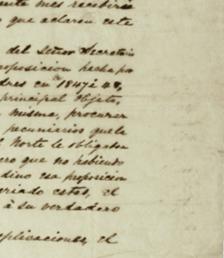 ente mes recibirá
que aclaren este
del Señor Secretario
proposicion hecha por
dres en 1847 á 48,
principal objeto,
misma, procurar
pecuniarios que le
Norte le obligaban
ero que no habiendo
dino esa proposicion
ariado estos, el
á su verdadero
plicaciones, el